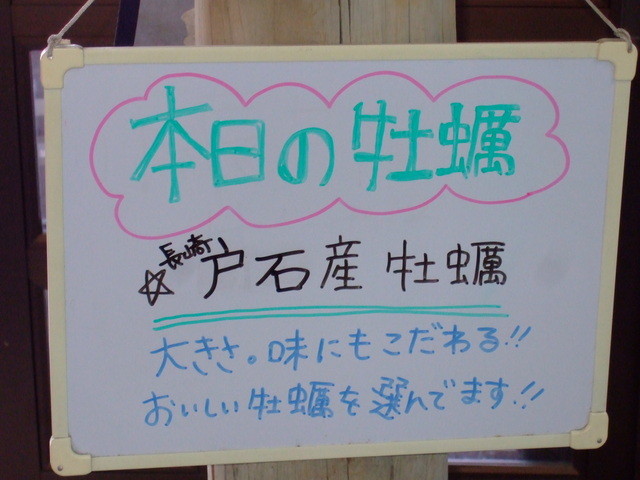 本日の牡蠣
☆長崎戸石産 牡蠣
大きさ。味にもこだわる!!
おいしい牡蠣を選んでます!!